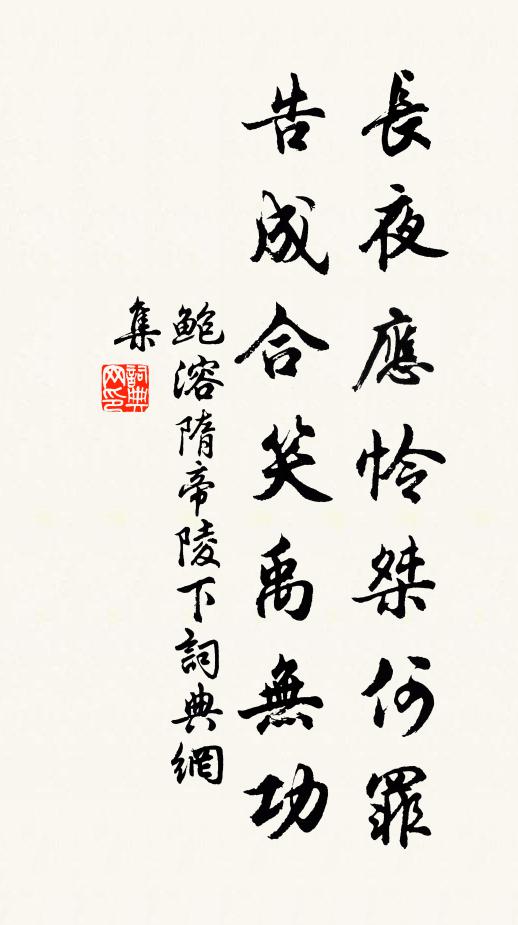 長夜應憐桀何罪
告成合笑禹無功
鮑溶隋帝陵下詞典網
集
詞典
网印